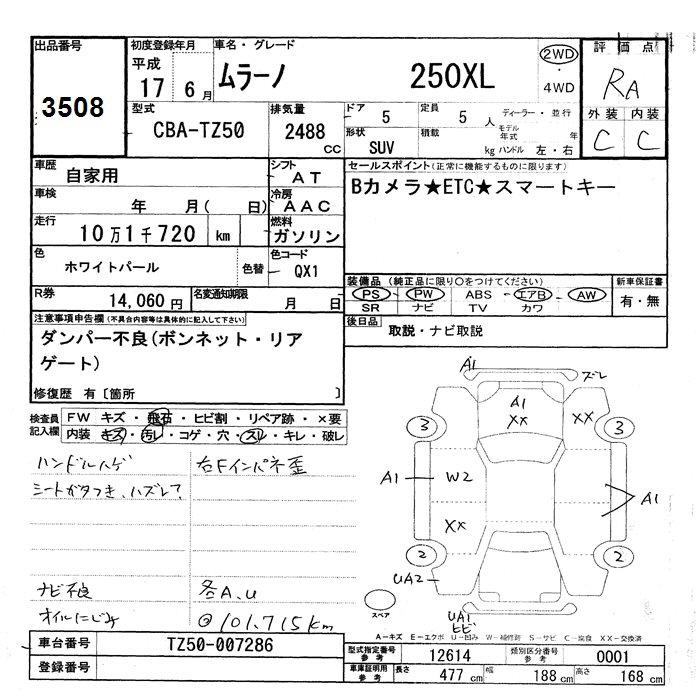 出品番号 初度登録年月 車名・グレード 評価点
3508 平成 17 6月 ムラーノ 250XL 2WD・4WD RA
型式 CBA-TZ50 排気量 2488 CC ドア 5 定員 5 人 ディーラー・並行 外装 内装
形状 SUV 積載 kg モデル年式 年 ハンドル 左・右 C C
車歴 自家用 シフト AT セールスポイント(正常に機能するものに限ります)
車検 年 月( 日) 冷房 AAC Bカメラ★ETC★スマートキー
走行 10万1千720 km 燃料 ガソリン
色 ホワイトパール 色替 色コード QX1
R券 14,060円 名変通知期限 月 日 装備品 (純正品に限り○をつけてください) 新車保証書
PS・PW・ABS・エアB・AW 有・無
SR ナビ TV カワ
注意事項申告欄(不具合内容等は具体的に記入して下さい) 後日品 取説・ナビ取説
ダンパー不良(ボンネット・リア
ゲート)
修復歴 有〔箇所 〕
検査員記入欄 FW キズ・飛石・ヒビ割・リペア跡・×要
内装 キズ・汚レ・コゲ・穴・スレ・キレ・破レ
ハンドルハゲ 右Fインパネ歪
シートガタつき、ハズレて
ナビ不良 各A、U
オイルにじみ ◎101,715km
A1 ズレ
A1 XX XX
3 3
A1 W2 A1
XX
2 2
UA2
スペア UA1 ヒビ
A-キズ E-エクボ U-凹み W-補修跡 S-サビ C-腐食 XX-交換済
車台番号 TZ50-007286 型式指定番号 参考 12614 類別区分番号 参考 0001
登録番号 車庫証明用 参考 長さ 477 cm 幅 188 cm 高さ 168 cm